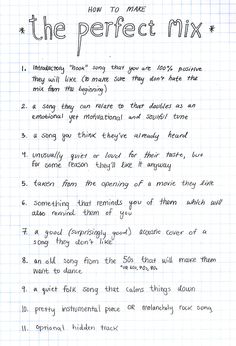 HOW TO MAKE
* the perfect mix *
1. introductory "hook" song that you are 100% positive
they will like (to make sure they don't hate the
mix from the beginning)
2. a song they can relate to that doubles as an
emotional yet motivational and soulful tune
3. a song you think they've already heard
4. unusually quiet or loud for their taste, but
for some reason they'll like it anyway
5. taken from the opening of a movie they like
6. something that reminds you of them which will
also remind them of you
7. a good (surprisingly good) acoustic cover of a
song they don't like
8. an old song from the 50s that will make them
want to dance *or 60s, 70s, 80s
9. a quiet folk song that calms things down
10. pretty instrumental piece OR melancholy rock song
11. optional hidden track